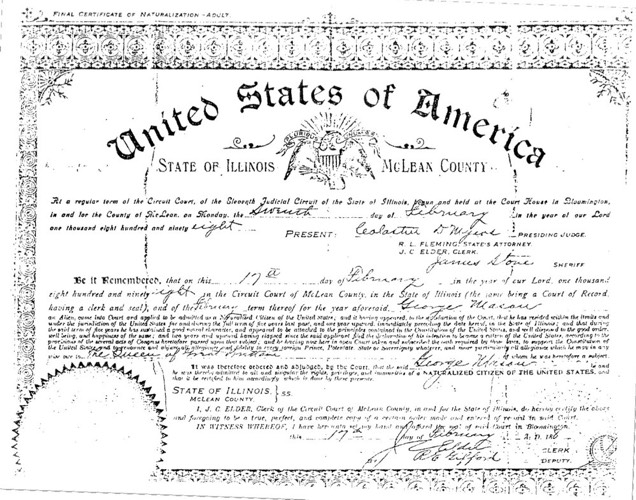 FINAL CERTIFICATE OF NATURALIZATION-ADULT.
United States of America
STATE OF ILLINOIS McLEAN COUNTY
At a regular term of the Circuit Court, of the Eleventh Judicial Circuit of the State of Illinois, begun and held at the Court House in Bloomington,
in and for the County of McLean, on Monday, the Seventh day of February in the year of our Lord
one thousand eight hundred and ninety eight
PRESENT: Colostin D Myers PRESIDING JUDGE.
R. L. FLEMING, STATE'S ATTORNEY.
J. C. ELDER, CLERK.
James Stone SHERIFF
Be it Remembered, that on this 17th day of February in the year of our Lord, one thousand
eight hundred and ninety eight in the Circuit Court of McLean County, in the State of Illinois (the same being a Court of Record,
having a clerk and seal), and of the term thereof for the year aforesaid George Mason
an Alien, came into Court and applied to be admitted as a Naturalized Citizen of the United States, and it having appeared, to the satisfaction of the Court, that he has resided within the limits and
under the jurisdiction of the United States for and during the full term of five years last past, and one year immediately preceding the date hereof, in the State of Illinois; and that during
the said term of five years he has sustained a good moral character, and appeared to be attached to the principles contained in the Constitution of the United States, and well disposed to the good order,
well being, and happiness of the same; and two years and upwards having elapsed since he declared his intention to become a citizen of the United States, according to the
provisions of the several acts of Congress heretofore passed upon that subject, and he having now here in open Court taken and subscribed the oath required by those laws, to support the Constitution of
the United States, and to renounce and abjure all allegiance and fidelity to every foreign Prince, Potentate, State or Sovereignty whatever, and more particularly all allegiance which he may in any
wise owe to The Queen of Great Britain of whom he was heretofore a subject.
It was therefore ordered and adjudged, by the Court, that the said George Mason be and
he was thereby admitted to all and singular the rights, privileges, and immunities of a NATURALIZED CITIZEN OF THE UNITED STATES, and
that it be certified to him accordingly, which is done by these presents.
STATE OF ILLINOIS, } SS.
McLEAN COUNTY.
I, J. C. ELDER, Clerk of the Circuit Court of McLean County, in and for the State of Illinois, do hereby certify the above
and foregoing to be a true, perfect, and complete copy of a certain order made and entered of record in said Court.
IN WITNESS WHEREOF, I have hereunto set my hand and affixed the seal of said Court in Bloomington,
this 17th day of February A. D. 189
J C Elder CLERK
By Gifford DEPUTY.